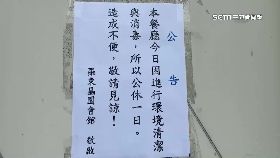 公告
本餐廳今日因進行環境清潔
與消毒，所以公休一日。
造成不便，敬請見諒！
羅東島國會館 敬啟